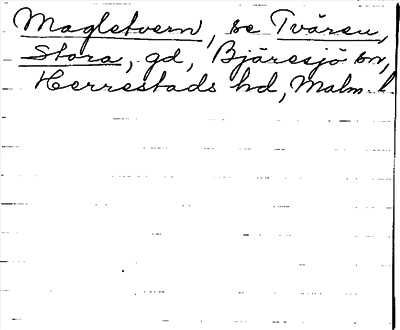 Magletvern, se Tvären,
Stora, gd, Bjäresjö sn,
Herrestads hd, Malm. l.